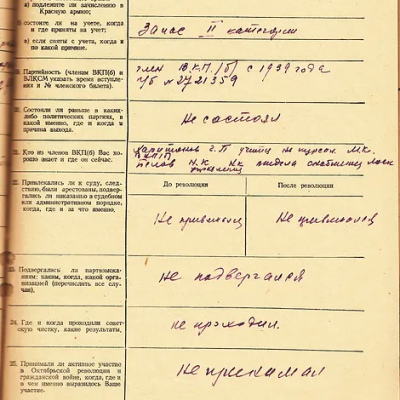 а) подлежите ли зачислению в
Красную армию;
б) состоите ли на учете, когда
и где приняты на учет;
в) если сняты с учета, когда и
по какой причине.
Запас II категории
Партийность (членам ВКП(б) и
ВЛКСМ указать время вступле-
ния и № членского билета).
член В.К.П./б/ с 1939 года
п/б №2721359
Состояли ли раньше в каких-
либо политических партиях, в
какой именно, где и когда и
причина выхода.
Не состоял
Кто из членов ВКП(б) Вас хо-
рошо знает и где он сейчас.
Харитонов г.П. на курсах МК.
ВКП/б/
Н.К. отдела
Привлекались ли к суду, след-
ствию, были арестованы, подвер-
гались ли наказанию в судебном
или административном порядке,
когда, где и за что именно,
До революции
После революции
Не привлекался
Не привлекался
Подвергались ли партвзыска-
ниям: каким, когда, какой орга-
низацией (перечислить все слу-
чаи),
Не подвергался
24. Где и когда проходили совет-
скую чистку, какие результаты,
не проходил.
25. Принимали ли активное участие
в Октябрьской революции и
гражданской войне, когда, где и
в чем именно выразилось Ваше
участие.
Не принимал